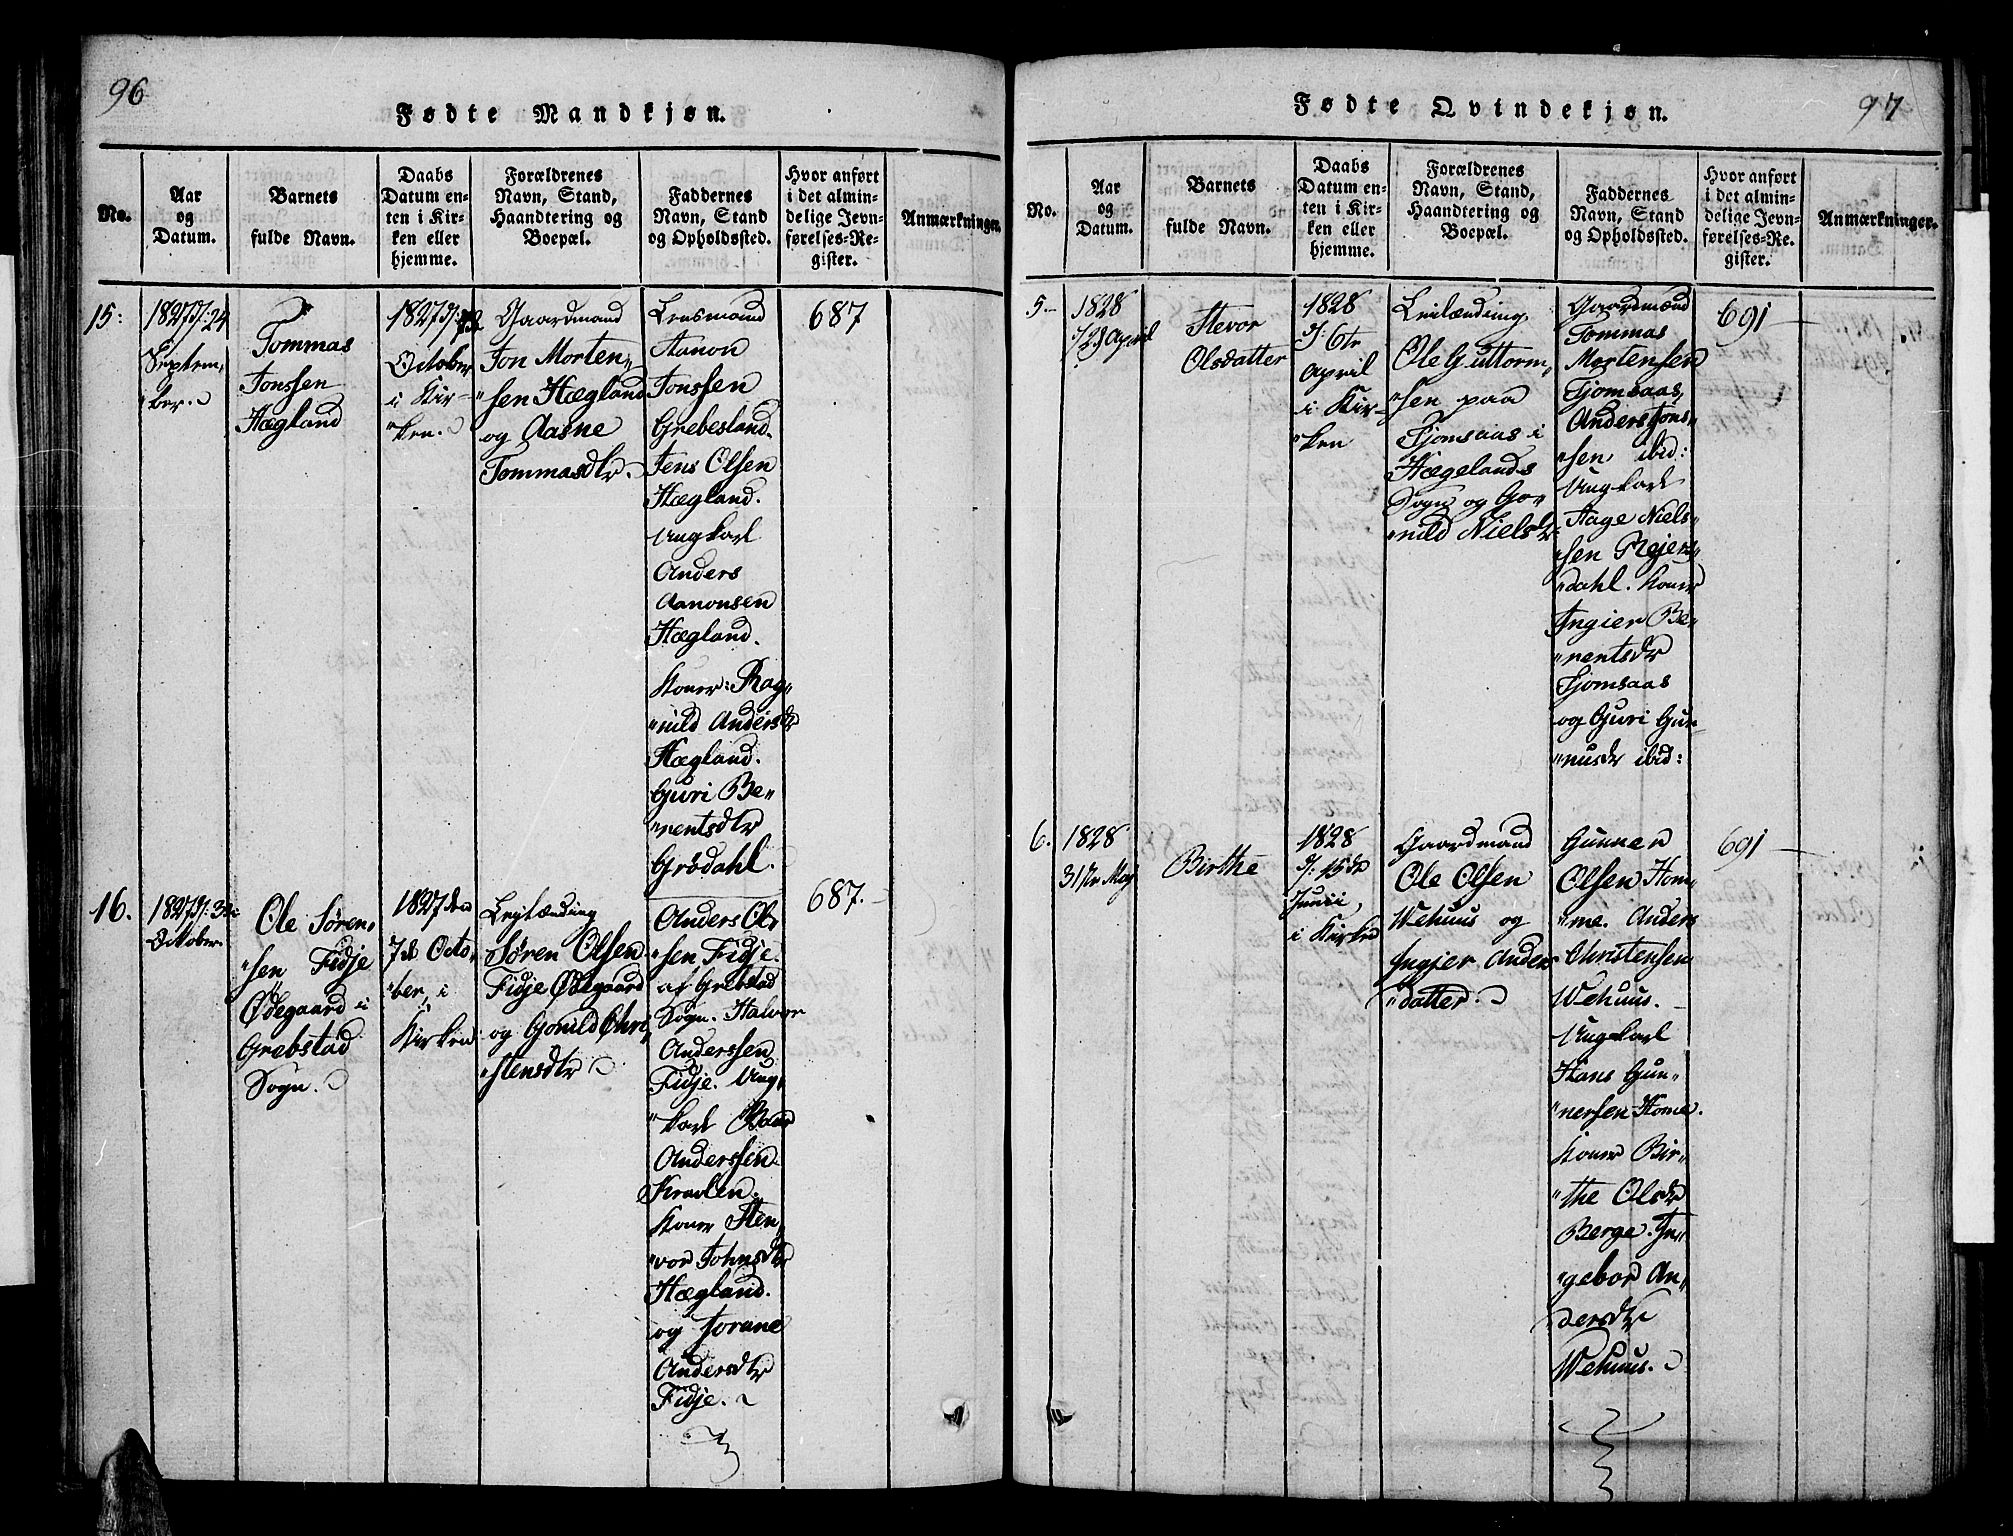 96
Fødte Mandkjøn.
No.
Aar
og
Datum.
Barnets
fulde Navn.
Daabs
Datum en-
ten i Kir-
ken eller
hjemme.
Forældrenes
Navn, Stand,
Haandtering og
Boepæl.
Faddernes
Navn, Stand
og Opholdssted.
Hvor anført
i det almin-
delige Jevn-
førelses-Re-
gister.
Anmærkninger.
15:
1827 24
Septem„
ber.
Tommas
Jonssen
Hægland
1827
October
i Kir-
„ken.
Gaardmand
Jon Morten„
„sen Hægland
og Aasne
Tommasdtr.
Lensmand
Aanon
Jonssen
Grebesland.
Jens Olsen
Hægland.
Ungkarl
Anders
Aanonsen
Hægland.
Koner: Rag„
„nild Andersdr
Hægland.
Guri Be„
„rentsdtr
Grødahl.
687
16.
1827
October.
Ole Søren„
„sen Fidje
Ødegaard i
Grebstad
Sogn.
1827 den
7de Octo„
„ber, i
Kirken
Leylænding
Søren Olsen
Fidje Ødegaard
og Gonild Chri„
„stensdtr
Anders Ol„
„sen Fidje.
af Grebstad
Sogn. Halvor
Anderssen
Fidje. Ung„
„karl
Anderssen
Koner Sten„
„vor Johnsdtr
Hægland.
og Jorane
Andersdtr
Fidje.
687.
97
Fødte Qvindekjøn.
No.
Aar
og
Datum.
Barnets
fulde Navn.
Daabs
Datum en-
ten i Kir-
ken eller
hjemme.
Forældrenes
Navn, Stand,
Haandtering og
Boepæl.
Faddernes
Navn, Stand
og Opholdssted.
Hvor anført
i det almin-
delige Jevn-
førelses-Re-
gister.
Anmærkninger.
5.
1828
April
Stevor
Olsdatter
1828
6te
April
i Kir-
„ken
Leilænding
Ole Guttorm„
„sen paa
Fjomsaas i
Hægelands
Sogn og Go„
„nild Nielsdr
Gaardmænd
Tommas
Mortensen
Fjomsaas,
Anders Jons„
„sen ibid:
Ungkarl
Aage Niels„
„sen Røjers„
„dahl. Koner
Ingier Be„
„rentsdr
Fjomsaas
og Guri Gun„
„nusdr ibid:
691
6.
1828
31te May
Birthe
1828
15de
Junii,
i Kirken
Gaardmand
Ole Olsen
Wehuus og
Ingier Anders
„datter.
Gunner
Olsen Hom„
„me. Anders
Christensen
Wehuus.
Ungkarl
Hans Gun„
„nersen Home.
Koner Bir„
„the Olsdr
Berge. In„
„gebor An„
dersdtr
Wehuus.
691